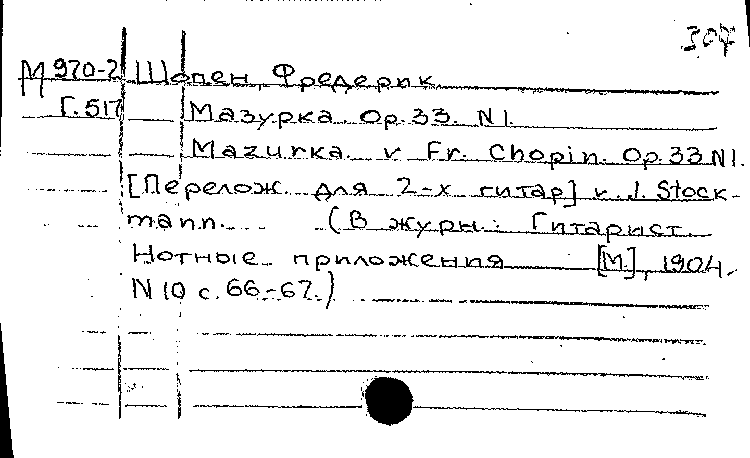 307
М 970-2 Шопен, Фредерик.
Г. 517 Мазурка. Op. 33. N 1.
Mazurka v Fr. Chopin. Op. 33 N 1.
[Перелож. для 2-х гитар] v. J. Stock-
mann. (В журн.: Гитарист.
Нотные приложения [М.], 1904.
N 10 с. 66-67.)